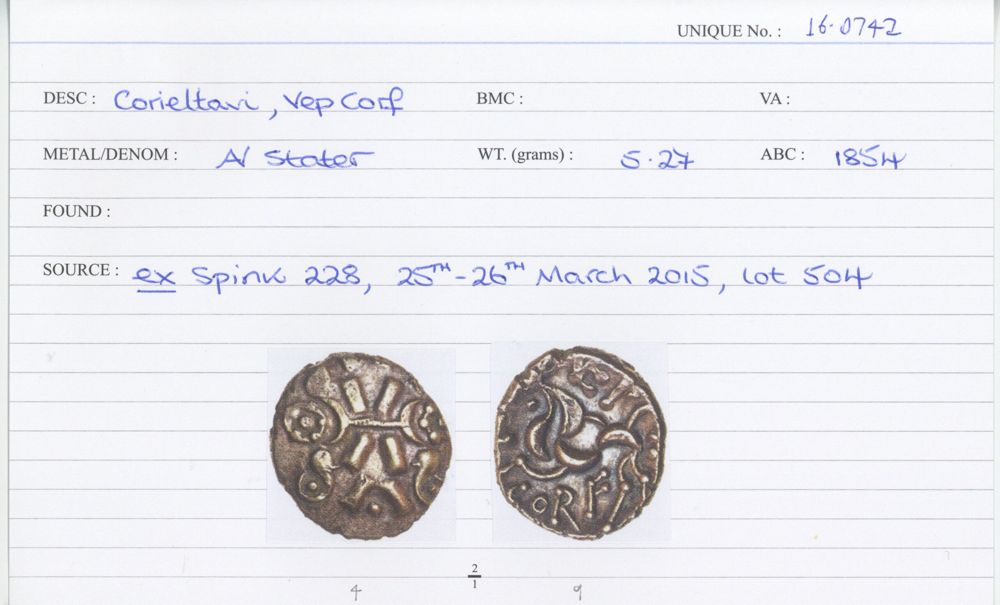 UNIQUE No. : 16.0742
DESC : Corieltavi, Vep Corf BMC : VA :
METAL/DENOM : AV Stater WT. (grams) : 5.27 ABC : 1854
FOUND :
SOURCE : ex Spink 228, 25TH-26TH March 2015, lot 504
CORF
2
1
4 9